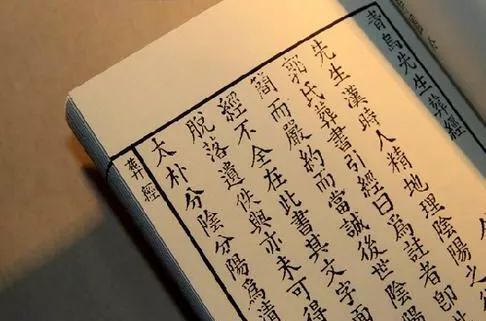 青烏先生葬經
先生漢時人精地理陰陽之
郭氏葬書引經曰爲註者卽
簡而嚴約而當誠後世陰陽
經不全在此書其文字面
脫落遺佚與亦未可得
太朴分陰分陽爲清
葬經